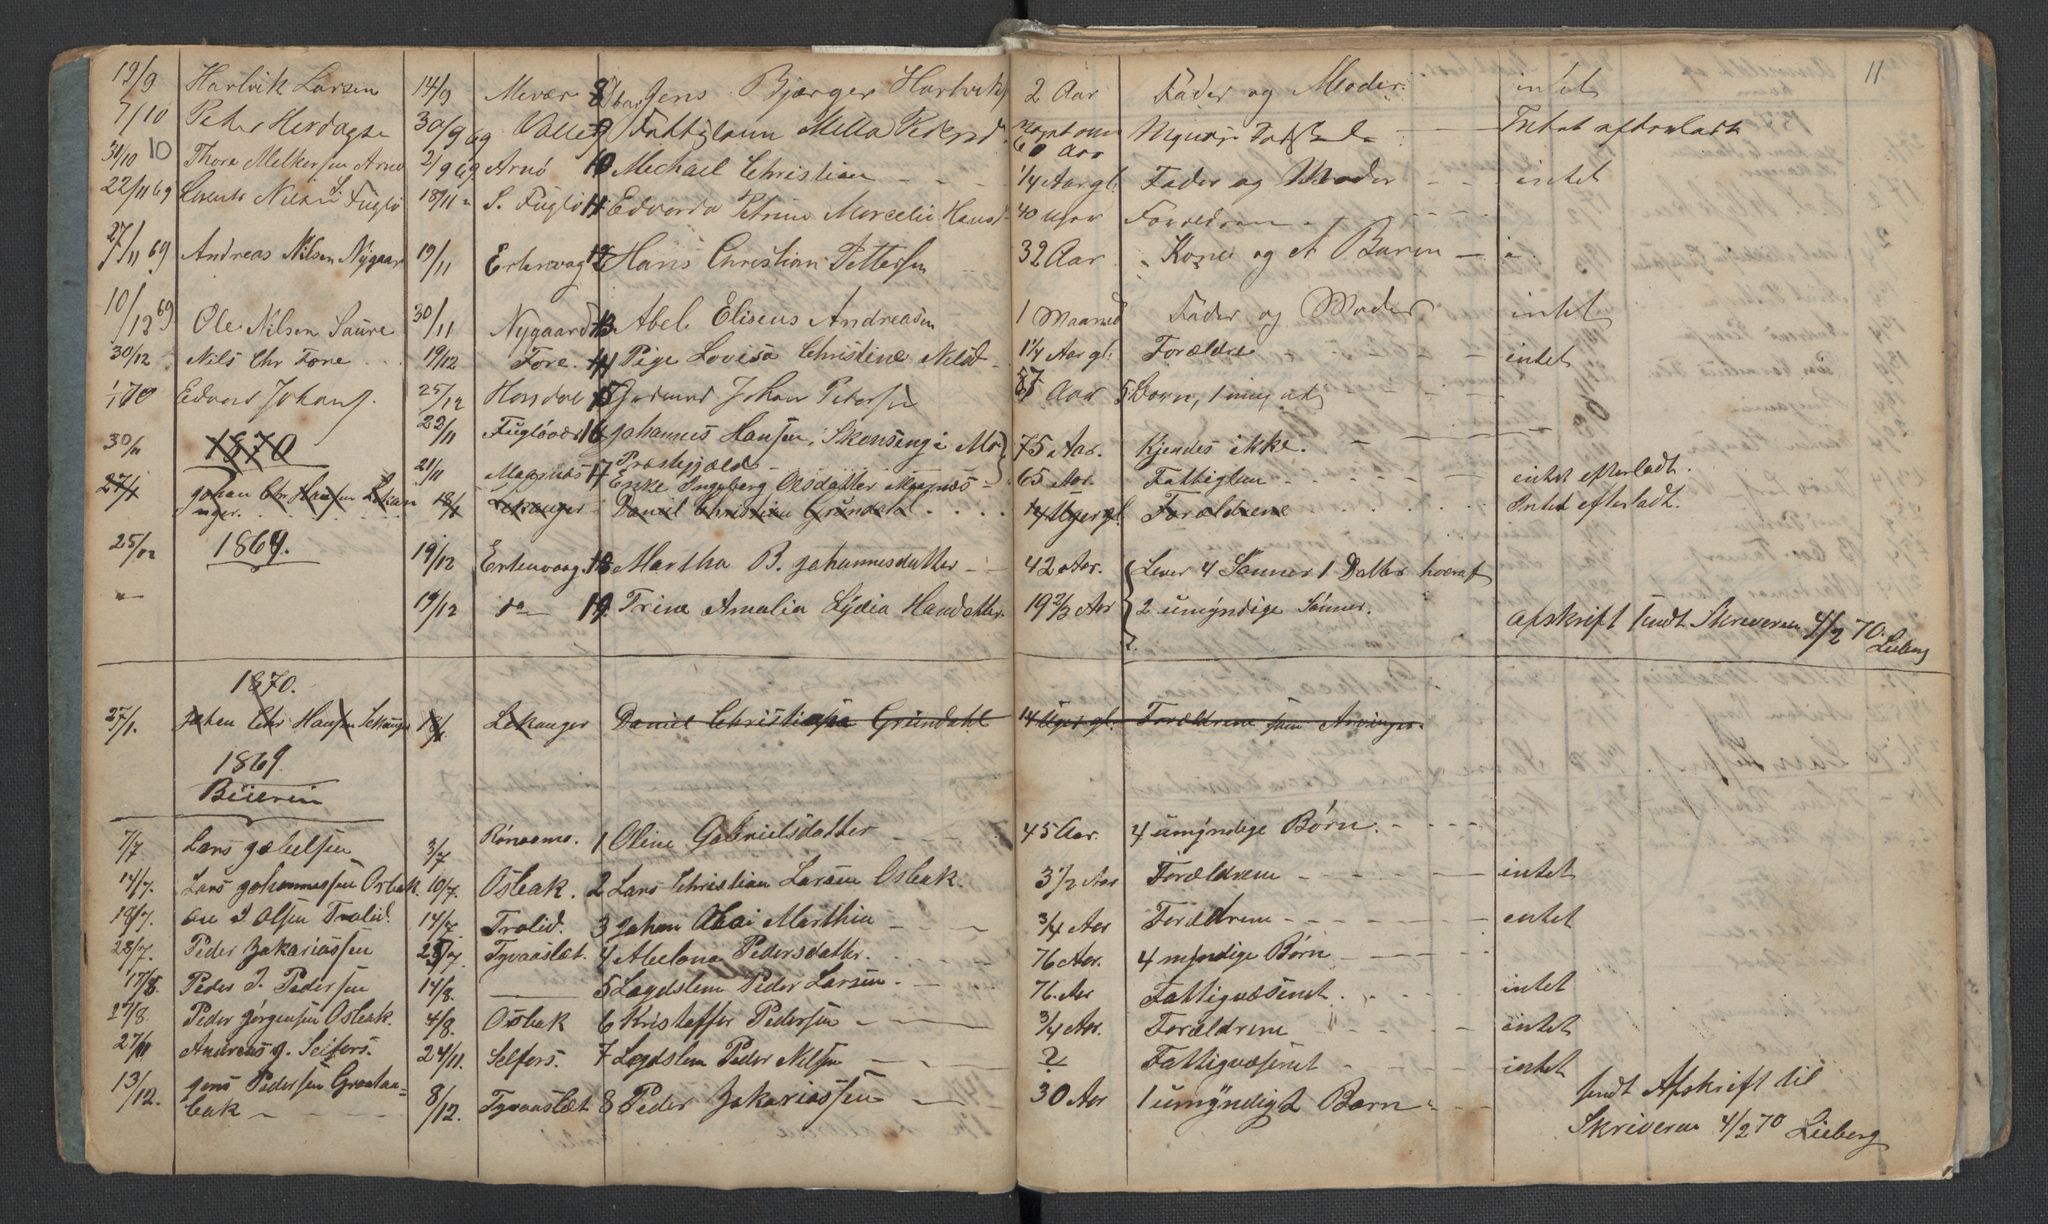 11
19/9 Hartvik Larsen 14/9 Mevær 8 Jens Bjærger Hartvik 2 Aar Fader og Moder intet
7/10 Peter Herdagsen 30/9 69 Valle 9 Fattiglem Mella Peders 60 Aar Intet efterladt
31/10 10 Thore Melkersen Arnø 2/9 69 Arnø 10 Michael Christian 1/4 Aar gl. Fader og Moder intet
22/11 69 Lorents Nilsen S. Fuglø 18/11 S. Fuglø 11 Edvarda Petrine Marcelie Hansd 40 Uger Forældren
27/11 69 Andreas Nilsen Nygaar 19/11 Ertenvaag 12 Hans Christian Pettersen 32 Aar Kone og et Baren
10/12 69 Ole Nilsen Saure 30/11 Nygaard 13 Abel Eliseus Andreasen 1 Maaned Fader og Moder intet
30/12 Nils Chr Fore 19/12 Fore 14 Pige Lovisa Christine Nilsd 1 1/4 Aar gl. Forældre intet
1/1 70 Edvard Johans. 25/12 Horsdal 15 Gudmund Johan Petersen 87 Aar 5 Børn,
30/11 1870 22/11 Fugløvær 16 Johannes Hansen, Skonseng i Mo Præstegjæld 75 Aar. Kjendes ikke.
21/11 Magnæs 17 Enke Ingeberg Olsdatter Magnæs 65 Aar. Fattiglem intet efterladt.
27/1 Johan Chr Hansen Lekanger. 18/1 Lekanger Daniel Christian Grundahl 14 Uger gl. Forældrene Intet efterladt.
1869.
25/12 19/12 Ertenvaag 18 Martha B. Johannesdatter 42 Aar. Lever 4 Sønner 1 Datter hvoraf
" 19/12 do 19. Trine Amalia Lydia Hansdatter. 19 2/3 Aar 2 umyndige Sønner.
Afskrift sendt Skriveren 4/2 70. Lieberg
1870.
27/1. Johan Chr Hansen Lekanger 18/1 Lekanger Daniel Christian Grundahl 14 Uger gl. Forældrene som Arvinger.
1869.
Beieren
7/7 Lars Jakelsen 3/7 Rønaamo. 1 Oline Gabrielsdatter 45 Aar. 4 umyndige Børn.
14/7. Lars Johannessen Osbak 10/7. Osbak. 2 Lars Christian Larsen Osbak. 3 1/2 Aar Forældrene intet
18/7. Ole J Olsen Trolid. 14/7 Trolid. 3 Johan Olai Marthin 3/4 Aar Forældrene intet
28/7. Peder Zakariassen 25/7. Tyvaaslæt. 4 Abelona Pedersdatter. 76 Aar. 4 myndige Børn
17/8. Peder J. Pedersen 14/8. 5 Lægdslem Peder Larsen 76. Aar Fattigvæsenet. intet
27/8 Peder Jørgensen Osbak. 4/8. Osbak 6 Kristoffer Pedersen 3/4 Aar. Forældrene intet
27/11 Andreas J. Selfors. 24/11. Selfors. 7 Lægdslem Peder Nilsen ? Fattigvæsenet intet
13/12. Jens Pedersen Graataabak 8/12. Tyvaaslæt 8 Peder Zakariassen 30 Aar 1 umyndigt Barn
sendt Afskrift til
Skriveren 4/2 70 Lieberg